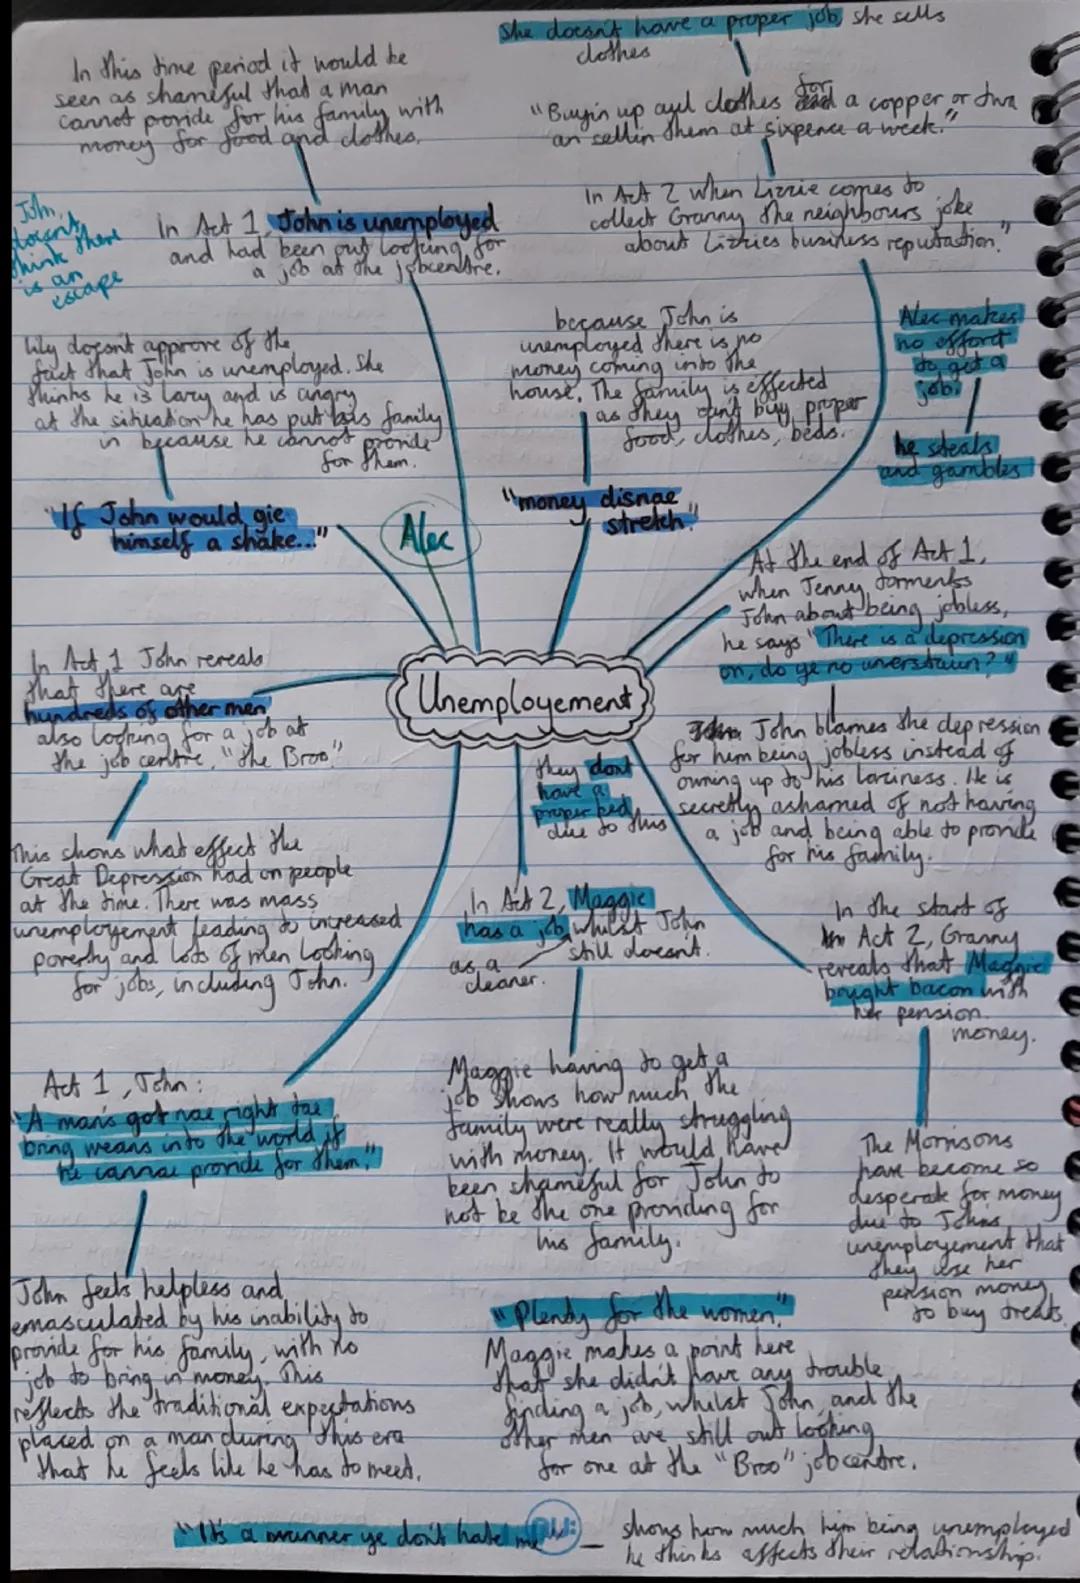 She doesn't have a proper job, she sells
clothes
"Buyin up auld clothes for a copper or twa
an sellin them at sixpence a week."
In Act 2 when Lizzie comes to
collect Granny the neighbours joke
about Lizzies business reputation."
In this time period it would be
seen as shameful that a man
cannot provide for his family with
money for food and clothes.
In Act 1, John is unemployed
and had been out looking for
a job at the jobcentre.
John
doesn't
think there
is an
escape
Lily doesn't approve of the
fact that John is unemployed. She
thinks he is lazy and is angry
at the situation he has put his family
in because he cannot provide
for them.
"If John would gie
himself a shake..."
Alec
because John is
unemployed there is no
money coming into the
house. The family is effected
as they can't buy proper
food, clothes, beds.
"money disnae
stretch."
Alec makes
no effort
to get a
job.
he steals
and gambles
At the end of Act 1,
when Jenny torments
John about being jobless,
he says "There is a depression
on, do ye no unerstaun?"
John blames the depression
for him being jobless instead of
owning up to his laziness. He is
secretly ashamed of not having
a job and being able to provide
for his family.
Unemployement
In Act 1 John reveals
that there are
hundreds of other men
also looking for a job at
the job centre, "the Broo"
This shows what effect the
Great Depression had on people
at the time. There was mass
unemployement leading to increased
poverty and lots of men looking
for jobs, including John.
they dont
have a
proper bed
due to this
In Act 2, Maggie
has a job, whilst John
still doesn't.
as a
cleaner.
Maggie having to get a
job shows how much the
family were really struggling
with money. It would have
been shameful for John to
not be the one providing for
his family.
In the start of
Act 2, Granny
reveals that Maggie
bought bacon with
her pension
money.
The Morrisons
have become so
desperate for money
due to Johns
unemployement that
they use her
pension money
to buy treats.
Act 1, John:
"A man's got nae right tae
bring weans into the world if
he cannae provide for them."
John feels helpless and
emasculated by his inability to
provide for his family, with no
job to bring in money. This
reflects the traditional expectations
placed on a man during this era
that he feels like he has to meet.
"Plenty for the women."
Maggie makes a point here
that she didn't have any trouble
finding a job, whilst John and the
other men are still out looking
for one at the "Broo" jobcentre.
"It's a wunner ye don't hate me"
shows how much him being unemployed
he thinks affects their relationship.